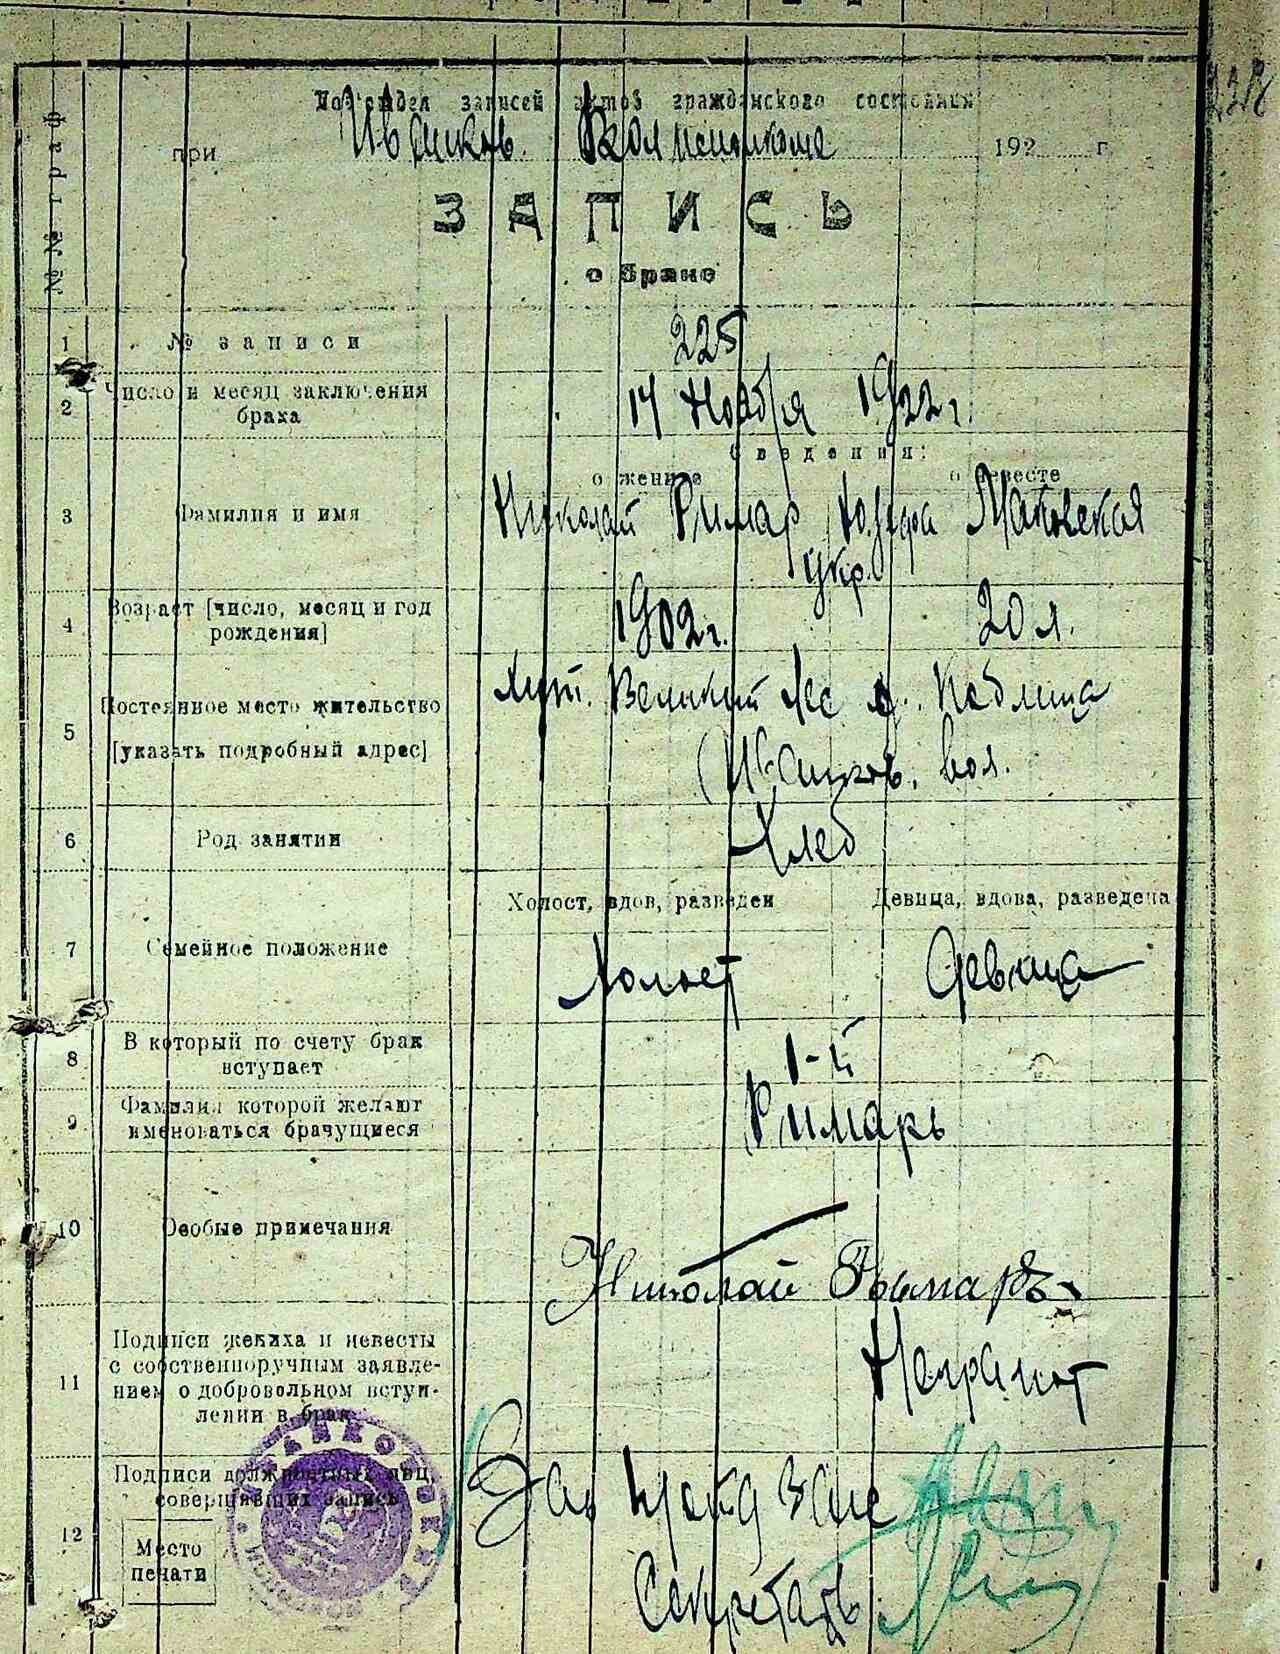 №№ граф
Подотдел записей актов гражданского состояния
при Иванков. Волисполкоме 192 г.
ЗАПИСЬ
о браке
1 № записи 225
2 Число и месяц заключения
браха 14 Ноября 1922 г.
Сведения:
о женихе о невесте
3 Фамилия и имя Николай Римар Юзефа Маковская
укр.
4 Возраст [число, месяц и год
рождения] 1902 г. 20 л.
5 Постоянное место жительство
[указать подробный адрес]
хут. Великий лес с.
Иванков. вол.
6 Род занятий Хлеб
Холост, вдов, разведен Девица, вдова, разведена
7 Семейное положение Холост Девица
8 В который по счету брак
вступает 1-й
9 Фамилия которой желают
именоваться брачущиеся Римарь
10 Особые примечания
Николай Рымаръ
11 Подписи жениха и невесты
с собственноручным заявле-
нием о добровольном вступ-
лении в брак
Неграмот
12 Подписи должностных лиц,
совершивших запись
Зав
Место
печати
Секретарь